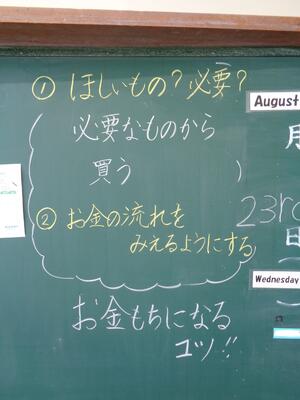 ① ほしいもの？必要？
必要なものから
買う
② お金の流れを
みえるようにする
お金もちになる
コツ!!
August
月
23rd
日
Wednesday